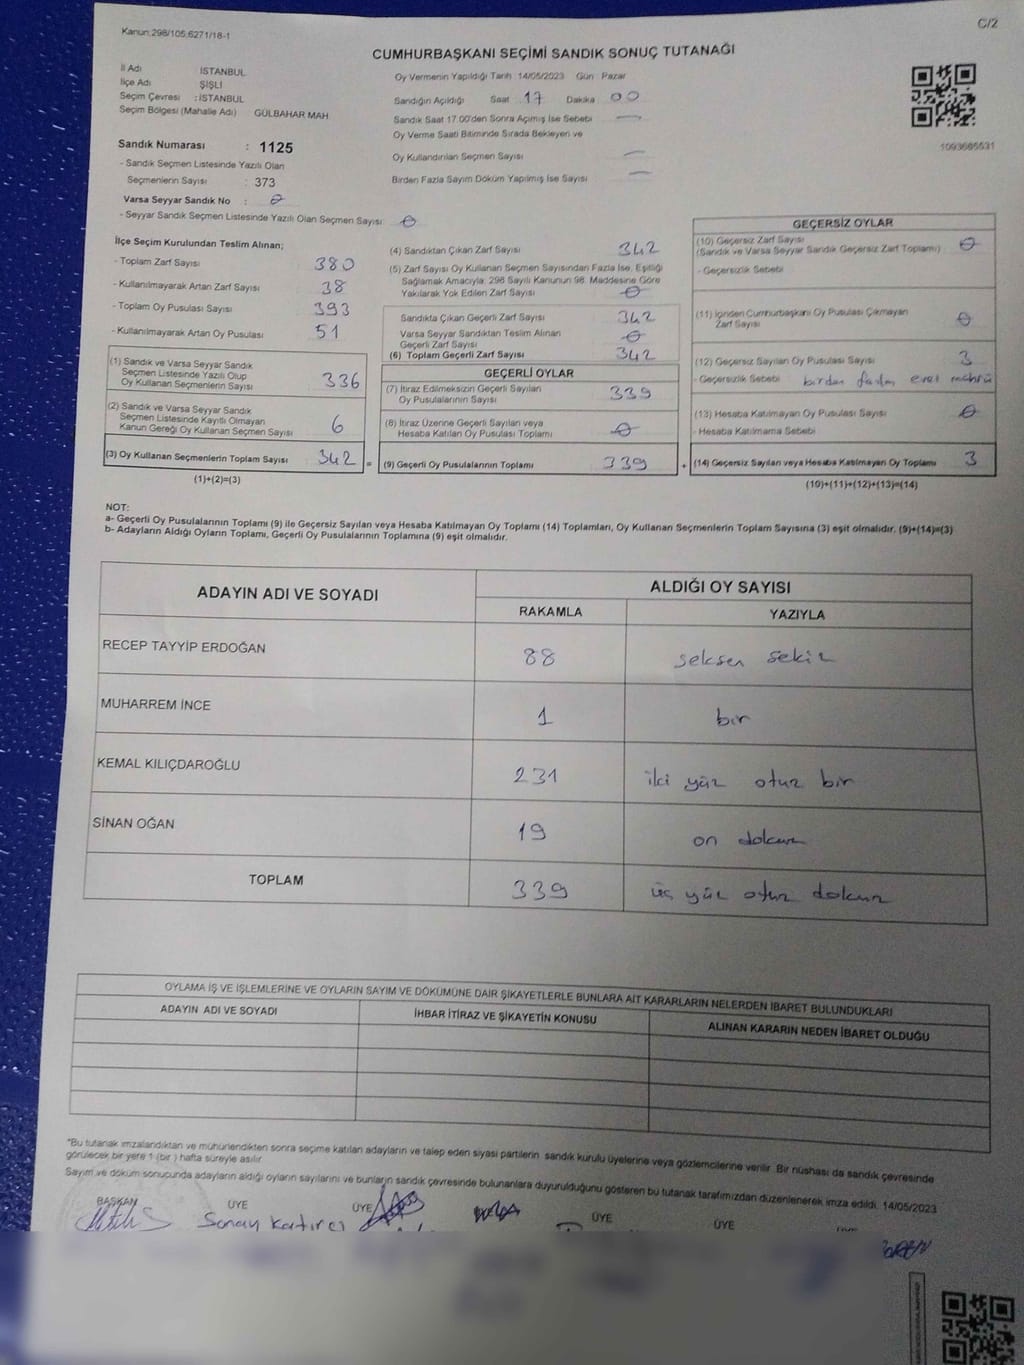 Kanun:298/105,6271/18-1
C/2
CUMHURBAŞKANI SEÇİMİ SANDIK SONUÇ TUTANAĞI
İl Adı İSTANBUL
İlçe Adı ŞİŞLİ
Seçim Çevresi : İSTANBUL
Seçim Bölgesi (Mahalle Adı) GÜLBAHAR MAH
Sandık Numarası : 1125
- Sandık Seçmen Listesinde Yazılı Olan
Seçmenlerin Sayısı : 373
Varsa Seyyar Sandık No : 0
- Seyyar Sandık Seçmen Listesinde Yazılı Olan Seçmen Sayısı: 0
Oy Vermenin Yapıldığı Tarih 14/05/2023 Gün Pazar
Sandığın Açıldığı Saat 17 Dakika 00
Sandık Saat 17:00'den Sonra Açımış İse Sebebi —
Oy Verme Saati Bitiminde Sırada Bekleyen ve
Oy Kullandırılan Seçmen Sayısı —
Birden Fazla Sayım Döküm Yapılmış İse Sayısı —
1093685531
İlçe Seçim Kurulundan Teslim Alınan;
- Toplam Zarf Sayısı 380
- Kullanılmayarak Artan Zarf Sayısı 38
- Toplam Oy Pusulası Sayısı 393
- Kullanılmayarak Artan Oy Pusulası 51
(1) Sandık ve Varsa Seyyar Sandık
Seçmen Listesinde Yazılı Olup
Oy Kullanan Seçmenlerin Sayısı 336
(2) Sandık ve Varsa Seyyar Sandık
Seçmen Listesinde Kayıtlı Olmayan
Kanun Gereği Oy Kullanan Seçmen Sayısı 6
(3) Oy Kullanan Seçmenlerin Toplam Sayısı 342 =
(1)+(2)=(3)
(4) Sandıktan Çıkan Zarf Sayısı 342
(5) Zarf Sayısı Oy Kullanan Seçmen Sayısından Fazla İse, Eşitliği
Sağlamak Amacıyla, 298 Sayılı Kanunun 98. Maddesine Göre
Yakılarak Yok Edilen Zarf Sayısı 0
Sandıkta Çıkan Geçerli Zarf Sayısı 342
Varsa Seyyar Sandıktan Teslim Alınan
Geçerli Zarf Sayısı 0
(6) Toplam Geçerli Zarf Sayısı 342
GEÇERLİ OYLAR
(7) İtiraz Edilmeksizin Geçerli Sayılan
Oy Pusulalarının Sayısı 339
(8) İtiraz Üzerine Geçerli Sayılan veya
Hesaba Katılan Oy Pusulası Toplamı 0
(9) Geçerli Oy Pusulalarının Toplamı 339 +
GEÇERSİZ OYLAR
(10) Geçersiz Zarf Sayısı 0
(Sandık ve Varsa Seyyar Sandık Geçersiz Zarf Toplamı)
- Geçersizlik Sebebi
(11) İçinden Cumhurbaşkanı Oy Pusulası Çıkmayan
Zarf Sayısı 0
(12) Geçersiz Sayılan Oy Pusulası Sayısı 3
- Geçersizlik Sebebi birden fazla evet mührü
(13) Hesaba Katılmayan Oy Pusulası Sayısı 0
- Hesaba Katılmama Sebebi
(14) Geçersiz Sayılan veya Hesaba Katılmayan Oy Toplamı 3
(10)+(11)+(12)+(13)=(14)
NOT:
a- Geçerli Oy Pusulalarının Toplamı (9) ile Geçersiz Sayılan veya Hesaba Katılmayan Oy Toplamı (14) Toplamları, Oy Kullanan Seçmenlerin Toplam Sayısına (3) eşit olmalıdır. (9)+(14)=(3)
b- Adayların Aldığı Oyların Toplamı, Geçerli Oy Pusulalarının Toplamına (9) eşit olmalıdır.
ADAYIN ADI VE SOYADI ALDIĞI OY SAYISI
RAKAMLA YAZIYLA
RECEP TAYYİP ERDOĞAN 88 seksen sekiz
MUHARREM İNCE 1 bir
KEMAL KILIÇDAROĞLU 231 iki yüz otuz bir
SİNAN OĞAN 19 on dokuz
TOPLAM 339 üç yüz otuz dokuz
OYLAMA İŞ VE İŞLEMLERİNE VE OYLARIN SAYIM VE DÖKÜMÜNE DAİR ŞİKAYETLERLE BUNLARA AİT KARARLARIN NELERDEN İBARET BULUNDUKLARI
ADAYIN ADI VE SOYADI İHBAR İTİRAZ VE ŞİKAYETİN KONUSU ALINAN KARARIN NEDEN İBARET OLDUĞU
"Bu tutanak imzalandıktan ve mühürlendikten sonra seçime katılan adayların ve talep eden siyasi partilerin sandık kurulu üyelerine veya gözlemcilerine verilir. Bir nüshası da sandık çevresinde
görülecek bir yere 1 (bir ) hafta süreyle asılır.
Sayım ve döküm sonucunda adayların aldığı oyların sayılarını ve bunların sandık çevresinde bulunanlara duyurulduğunu gösteren bu tutanak tarafımızdan düzenlenerek imza edildi. 14/05/2023
BAŞKAN ÜYE ÜYE ÜYE ÜYE
Sonay Katırcı